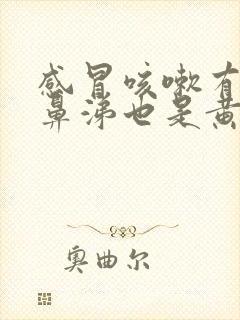 感冒咳嗽有
鼻涕也是黄
奥曲尔